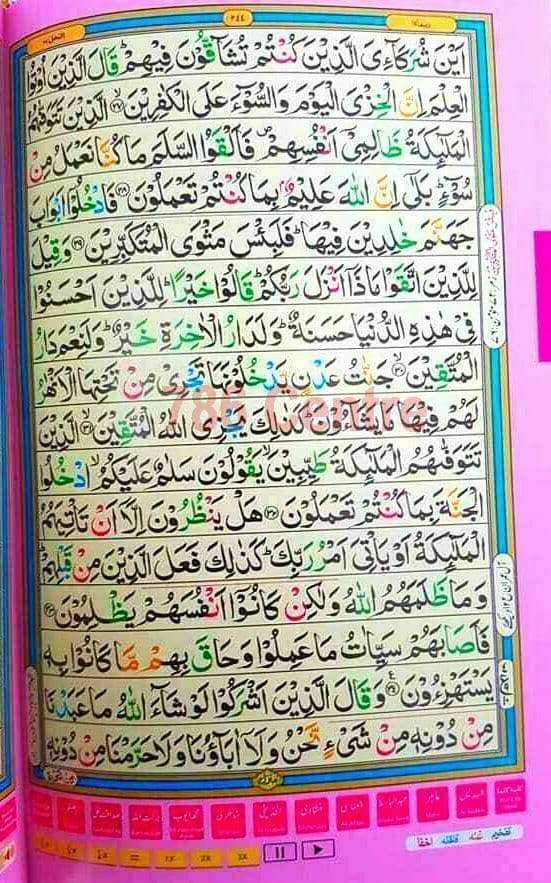 ربما ١٤
٢٤٤
النحل ١٦
اَيْنَ شُرَكَآءِىَ الَّذِيْنَ كُنْتُمْ تُشَآقُّوْنَ فِيْهِمْ ؕ قَالَ الَّذِيْنَ اُوْتُوا
الْعِلْمَ اِنَّ الْخِزْىَ الْيَوْمَ وَالسُّوْٓءَ عَلَى الْكٰفِرِيْنَ ۙ‏﴿۲۷﴾ الَّذِيْنَ تَتَوَفّٰٮهُمُ
الْمَلٰٓٮِٕكَةُ ظَالِمِىْۤ اَنْفُسِهِمْ ۪ فَاَلْقَوُا السَّلَمَ مَا كُنَّا نَعْمَلُ مِنْ
سُوْٓءٍ ؕ بَلٰٓى اِنَّ اللّٰهَ عَلِيْمٌۢ بِمَا كُنْتُمْ تَعْمَلُوْنَ ﴿۲۸﴾ فَادْخُلُوْۤا اَبْوَابَ
جَهَنَّمَ خٰلِدِيْنَ فِيْهَا ؕ فَلَبِئْسَ مَثْوَى الْمُتَكَبِّرِيْنَ ﴿۲۹﴾ وَقِيْلَ
لِلَّذِيْنَ اتَّقَوْا مَاذَاۤ اَنْزَلَ رَبُّكُمْ ؕ قَالُوْا خَيْرًا ؕ لِلَّذِيْنَ اَحْسَنُوْا
فِىْ هٰذِهِ الدُّنْيَا حَسَنَةٌ ؕ وَلَدَارُ الْاٰخِرَةِ خَيْرٌ ؕ وَلَنِعْمَ دَارُ
الْمُتَّقِيْنَ ۙ﴿۳۰﴾ جَنّٰتُ عَدْنٍ يَّدْخُلُوْنَهَا تَجْرِىْ مِنْ تَحْتِهَا الْاَنْهٰرُ
لَهُمْ فِيْهَا مَا يَشَآءُوْنَ ؕ كَذٰلِكَ يَجْزِى اللّٰهُ الْمُتَّقِيْنَ ۙ﴿۳۱﴾ الَّذِيْنَ
تَتَوَفّٰٮهُمُ الْمَلٰٓٮِٕكَةُ طَيِّبِيْنَ ۙ يَقُوْلُوْنَ سَلٰمٌ عَلَيْكُمُ ۙ ادْخُلُوا
الْجَنَّةَ بِمَا كُنْتُمْ تَعْمَلُوْنَ ﴿۳۲﴾ هَلْ يَنْظُرُوْنَ اِلَّاۤ اَنْ تَاْتِيَهُمُ
الْمَلٰٓٮِٕكَةُ اَوْ يَاْتِىَ اَمْرُ رَبِّكَ ؕ كَذٰلِكَ فَعَلَ الَّذِيْنَ مِنْ قَبْلِهِمْ ؕ
وَمَا ظَلَمَهُمُ اللّٰهُ وَلٰكِنْ كَانُوْۤا اَنْفُسَهُمْ يَظْلِمُوْنَ ﴿۳۳﴾
فَاَصَابَهُمْ سَيِّاٰتُ مَا عَمِلُوْا وَحَاقَ بِهِمْ مَّا كَانُوْا بِهٖ
يَسْتَهْزِءُوْنَ ﴿۳۴﴾ وَقَالَ الَّذِيْنَ اَشْرَكُوْا لَوْ شَآءَ اللّٰهُ مَا عَبَدْنَا
مِنْ دُوْنِهٖ مِنْ شَىْءٍ نَّحْنُ وَلَاۤ اٰبَآؤُنَا وَلَا حَرَّمْنَا مِنْ دُوْنِهٖ
786 Centre
تفخيم غنه قلقله اخفا
1X 2X 3X